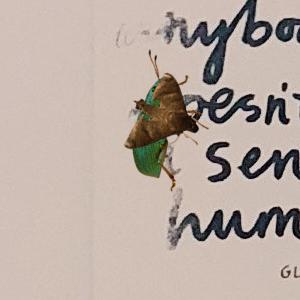 nybo
oesn't
sen
hum
GL